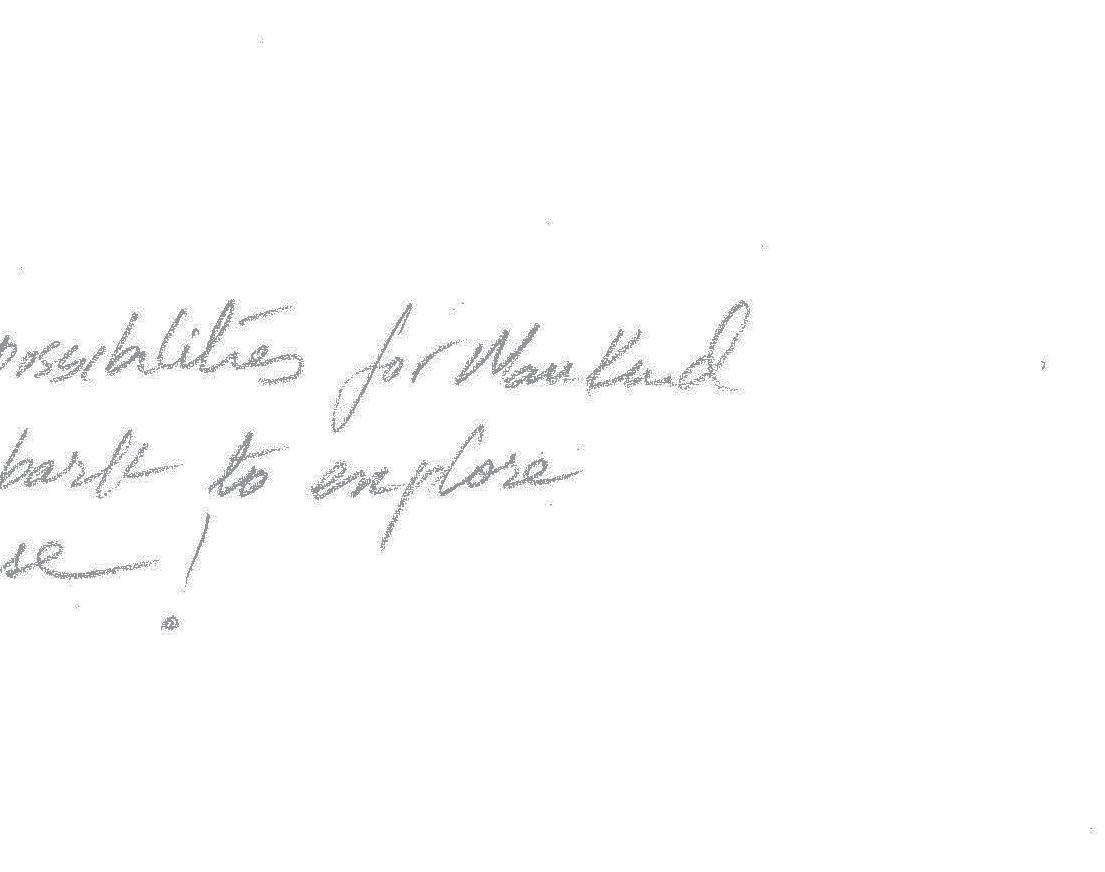 possibilities for ManKind
bark to explore
se !